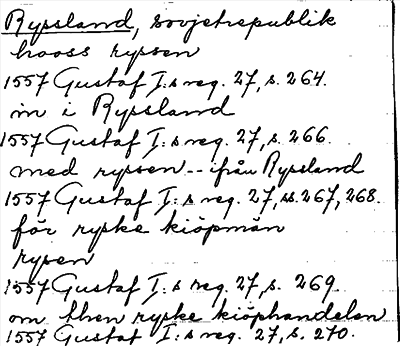 Ryssland, sovjetrepublik
hooss rypsen
1557 Gustaf I:s reg. 27, s. 264.
in i Rypsland
1557 Gustaf I:s reg. 27, s. 266.
med rypsen -- ifrån Rypsland
1557 Gustaf I:s reg. 27, ss. 267, 268.
för ryske kiöpmän
rysen
1557 Gustaf I:s reg. 27, s. 269
om then ryske kiöphandelen
1557 Gustaf I:s reg. 27, s. 270.